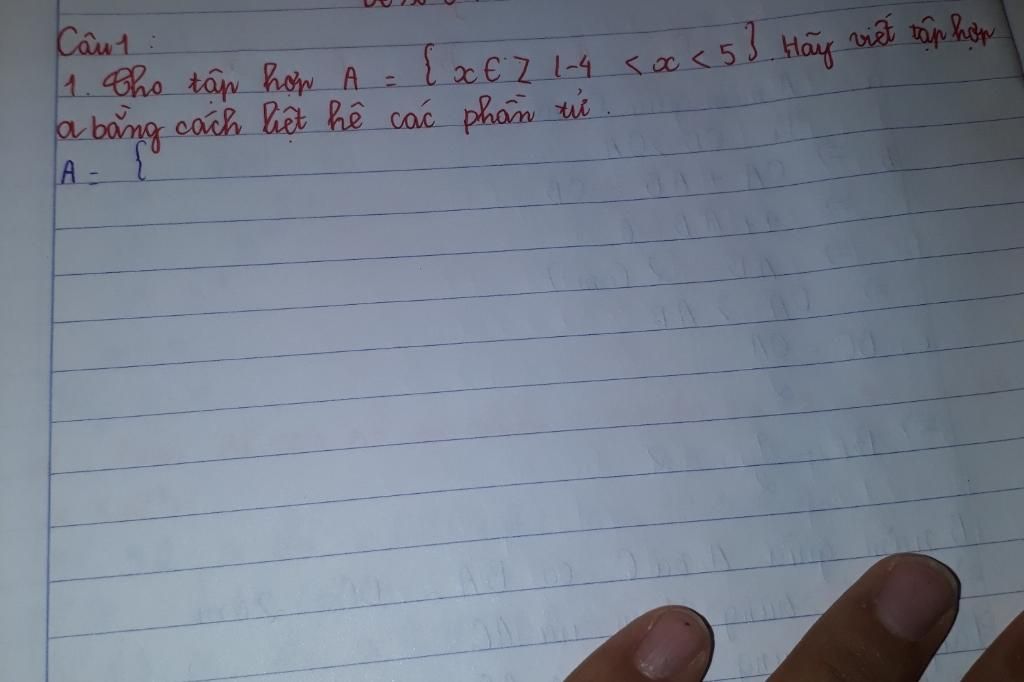 Câu 1 :
1. Cho tập hợp A = { x ∈ Z | -4 < x < 5 }. Hãy viết tập hợp
a bằng cách liệt hê các phần tử .
A = {